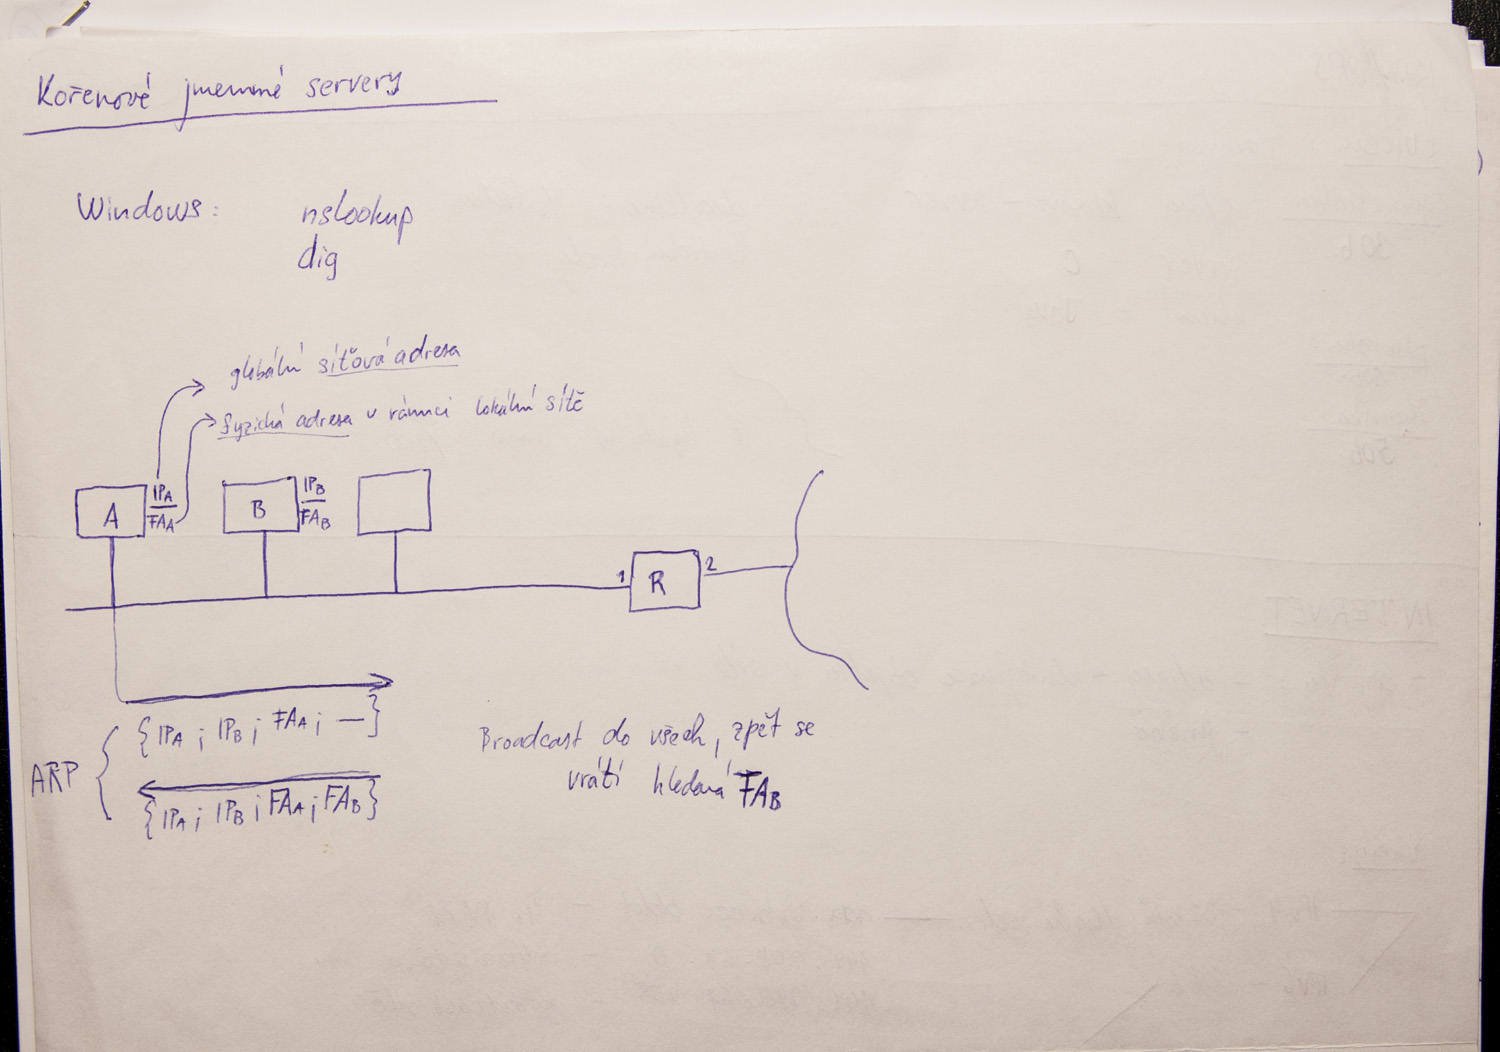 Kořenové jmenné servery
Windows: nslookup
dig
globální síťová adresa
fyzická adresa v rámci lokální sítě
A
IPA
FAA
B
IPB
FAB
1 R 2
ARP
{IPA ; IPB ; FAA ; —}
{IPA ; IPB ; FAA ; FAB}
Broadcast do všech, zpět se
vrátí hledaná FAB
INTERNET